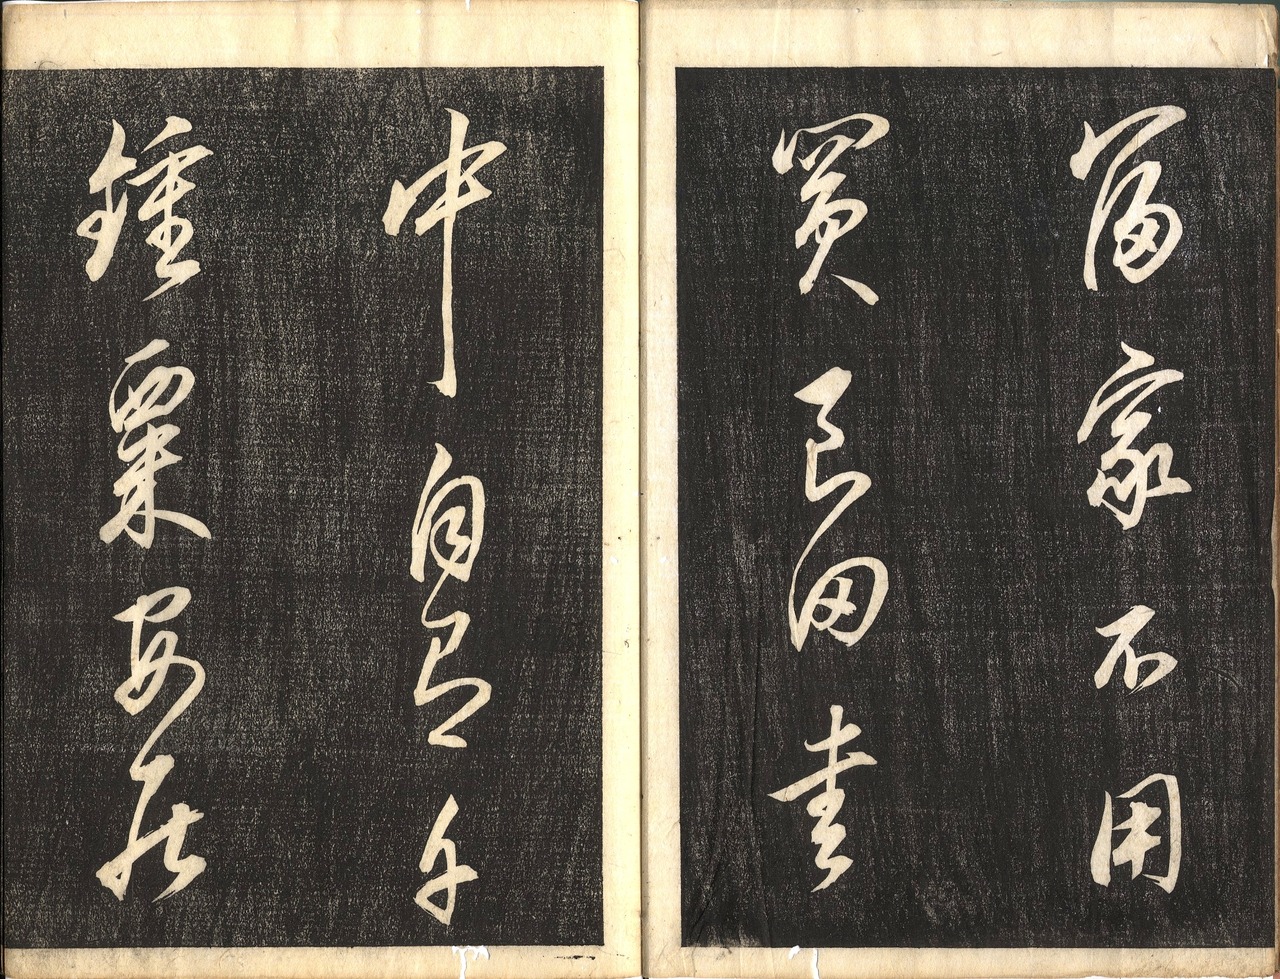 富家不用
買良田書
中自有千
鍾粟安居